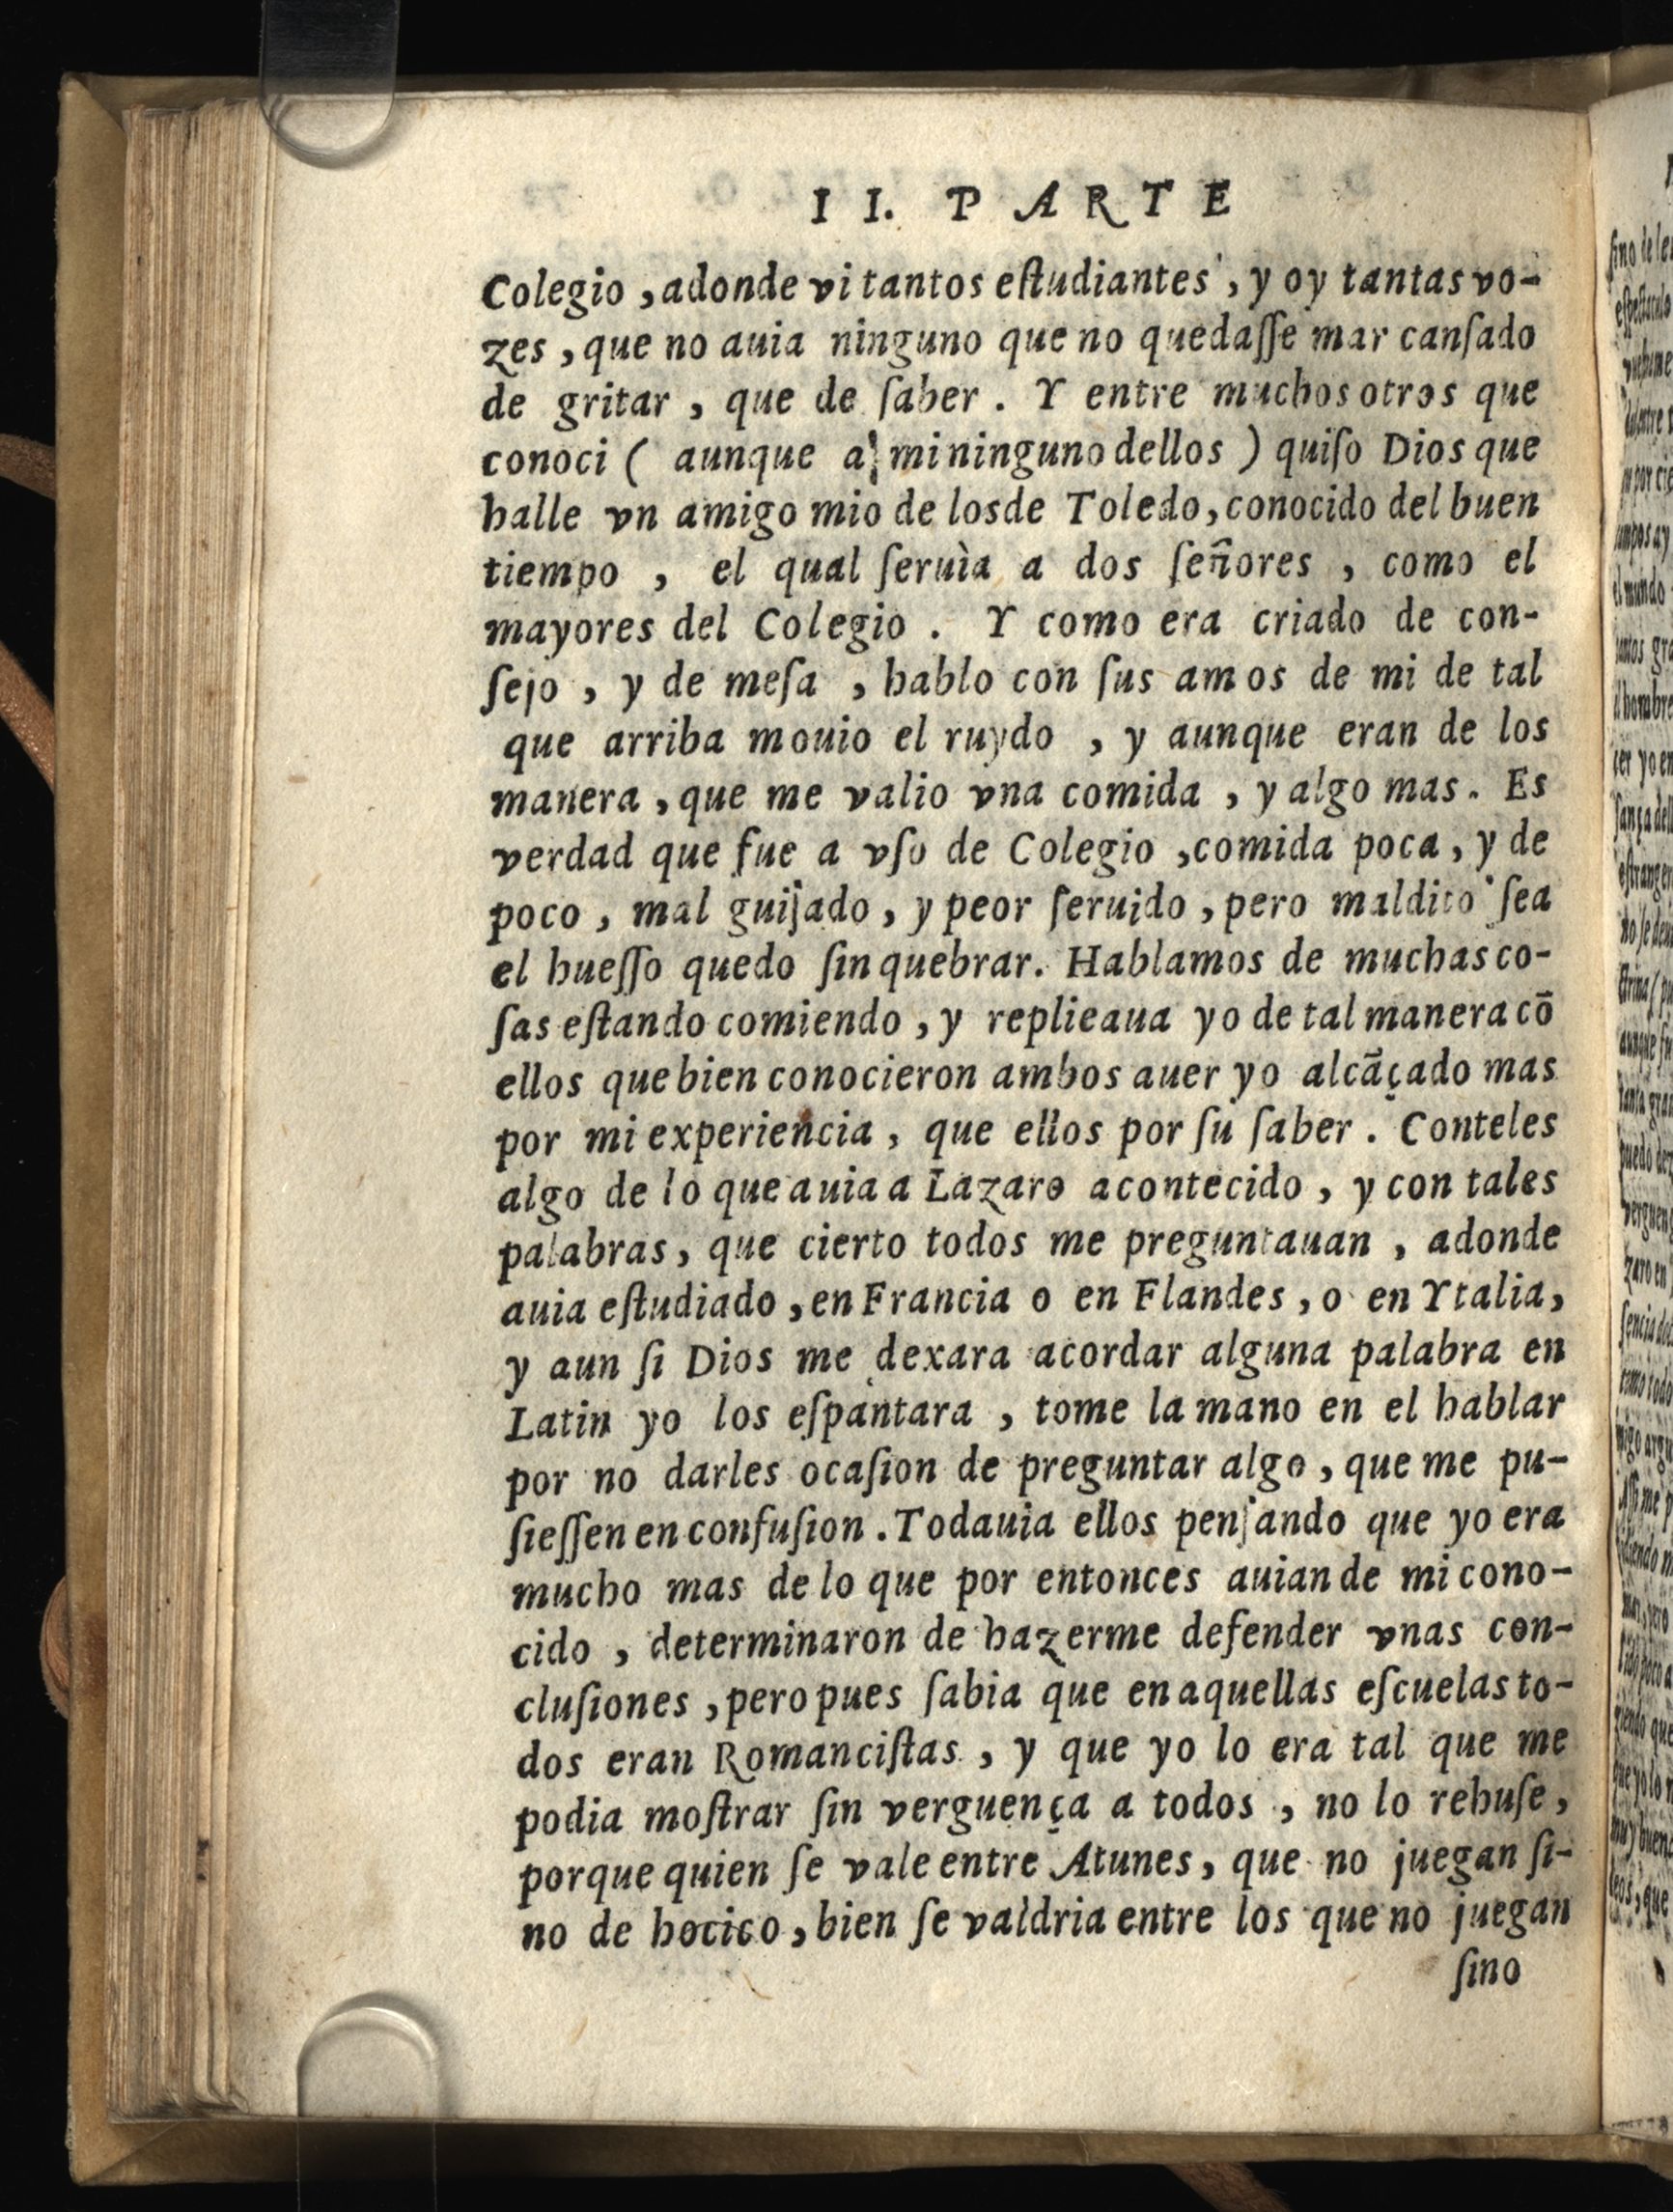 II. PARTE
Colegio, adonde vi tantos eſtudiantes, y oy tantas vo-
zes, que no auia ninguno que no quedaſſe mar canſado
de gritar, que de ſaber. Y entre muchos otros que
conoci ( aunque a mi ninguno dellos ) quiſo Dios que
halle vn amigo mio de los de Toledo, conocido del buen
tiempo, el qual ſeruìa a dos ſeñores, como el
mayores del Colegio. Y como era criado de con-
ſejo, y de meſa, hablo con ſus amos de mi de tal
que arriba mouio el ruydo, y aunque eran de los
manera, que me valio vna comida, y algo mas. Es
verdad que fue a vſo de Colegio, comida poca, y de
poco, mal guiſado, y peor ſeruido, pero maldito ſea
el hueſſo quedo ſin quebrar. Hablamos de muchas co-
ſas eſtando comiendo, y replieaua yo de tal manera cō
ellos que bien conocieron ambos auer yo alcāçado mas
por mi experiencia, que ellos por ſu ſaber. Conteles
algo de lo que auia a Lazaro acontecido, y con tales
palabras, que cierto todos me preguntauan, adonde
auia eſtudiado, en Francia o en Flandes, o en Ytalia,
y aun ſi Dios me dexara acordar alguna palabra en
Latin yo los eſpantara, tome la mano en el hablar
por no darles ocaſion de preguntar algo, que me pu-
ſieſſen en confuſion. Todauia ellos penſando que yo era
mucho mas de lo que por entonces auian de mi cono-
cido, determinaron de hazerme defender vnas con-
cluſiones, pero pues ſabia que en aquellas eſcuelas to-
dos eran Romanciſtas, y que yo lo era tal que me
podia moſtrar ſin verguença a todos, no lo rehuſe,
porque quien ſe vale entre Atunes, que no juegan ſi-
no de hocico, bien ſe valdria entre los que no juegan
ſino